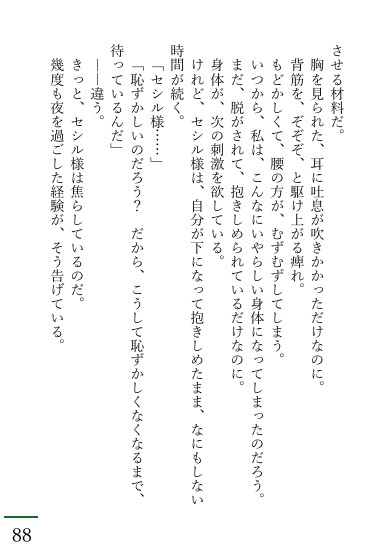 させる材料だ。
胸を見られた、耳に吐息が吹きかかっただけなのに。
背筋を、ぞぞぞ、と駆け上がる痺れ。
もどかしくて、腰の方が、むずむずしてしまう。
いつから、私は、こんなにいやらしい身体になってしまったのだろう。
まだ、脱がされて、抱きしめられているだけなのに。
身体が、次の刺激を欲している。
けれど、セシル様は、自分が下になって抱きしめたまま、なにもしない
時間が続く。
「セシル様……」
「恥ずかしいのだろう？　だから、こうして恥ずかしくなくなるまで、
待っているんだ」
――違う。
きっと、セシル様は焦らしているのだ。
幾度も夜を過ごした経験が、そう告げている。
88